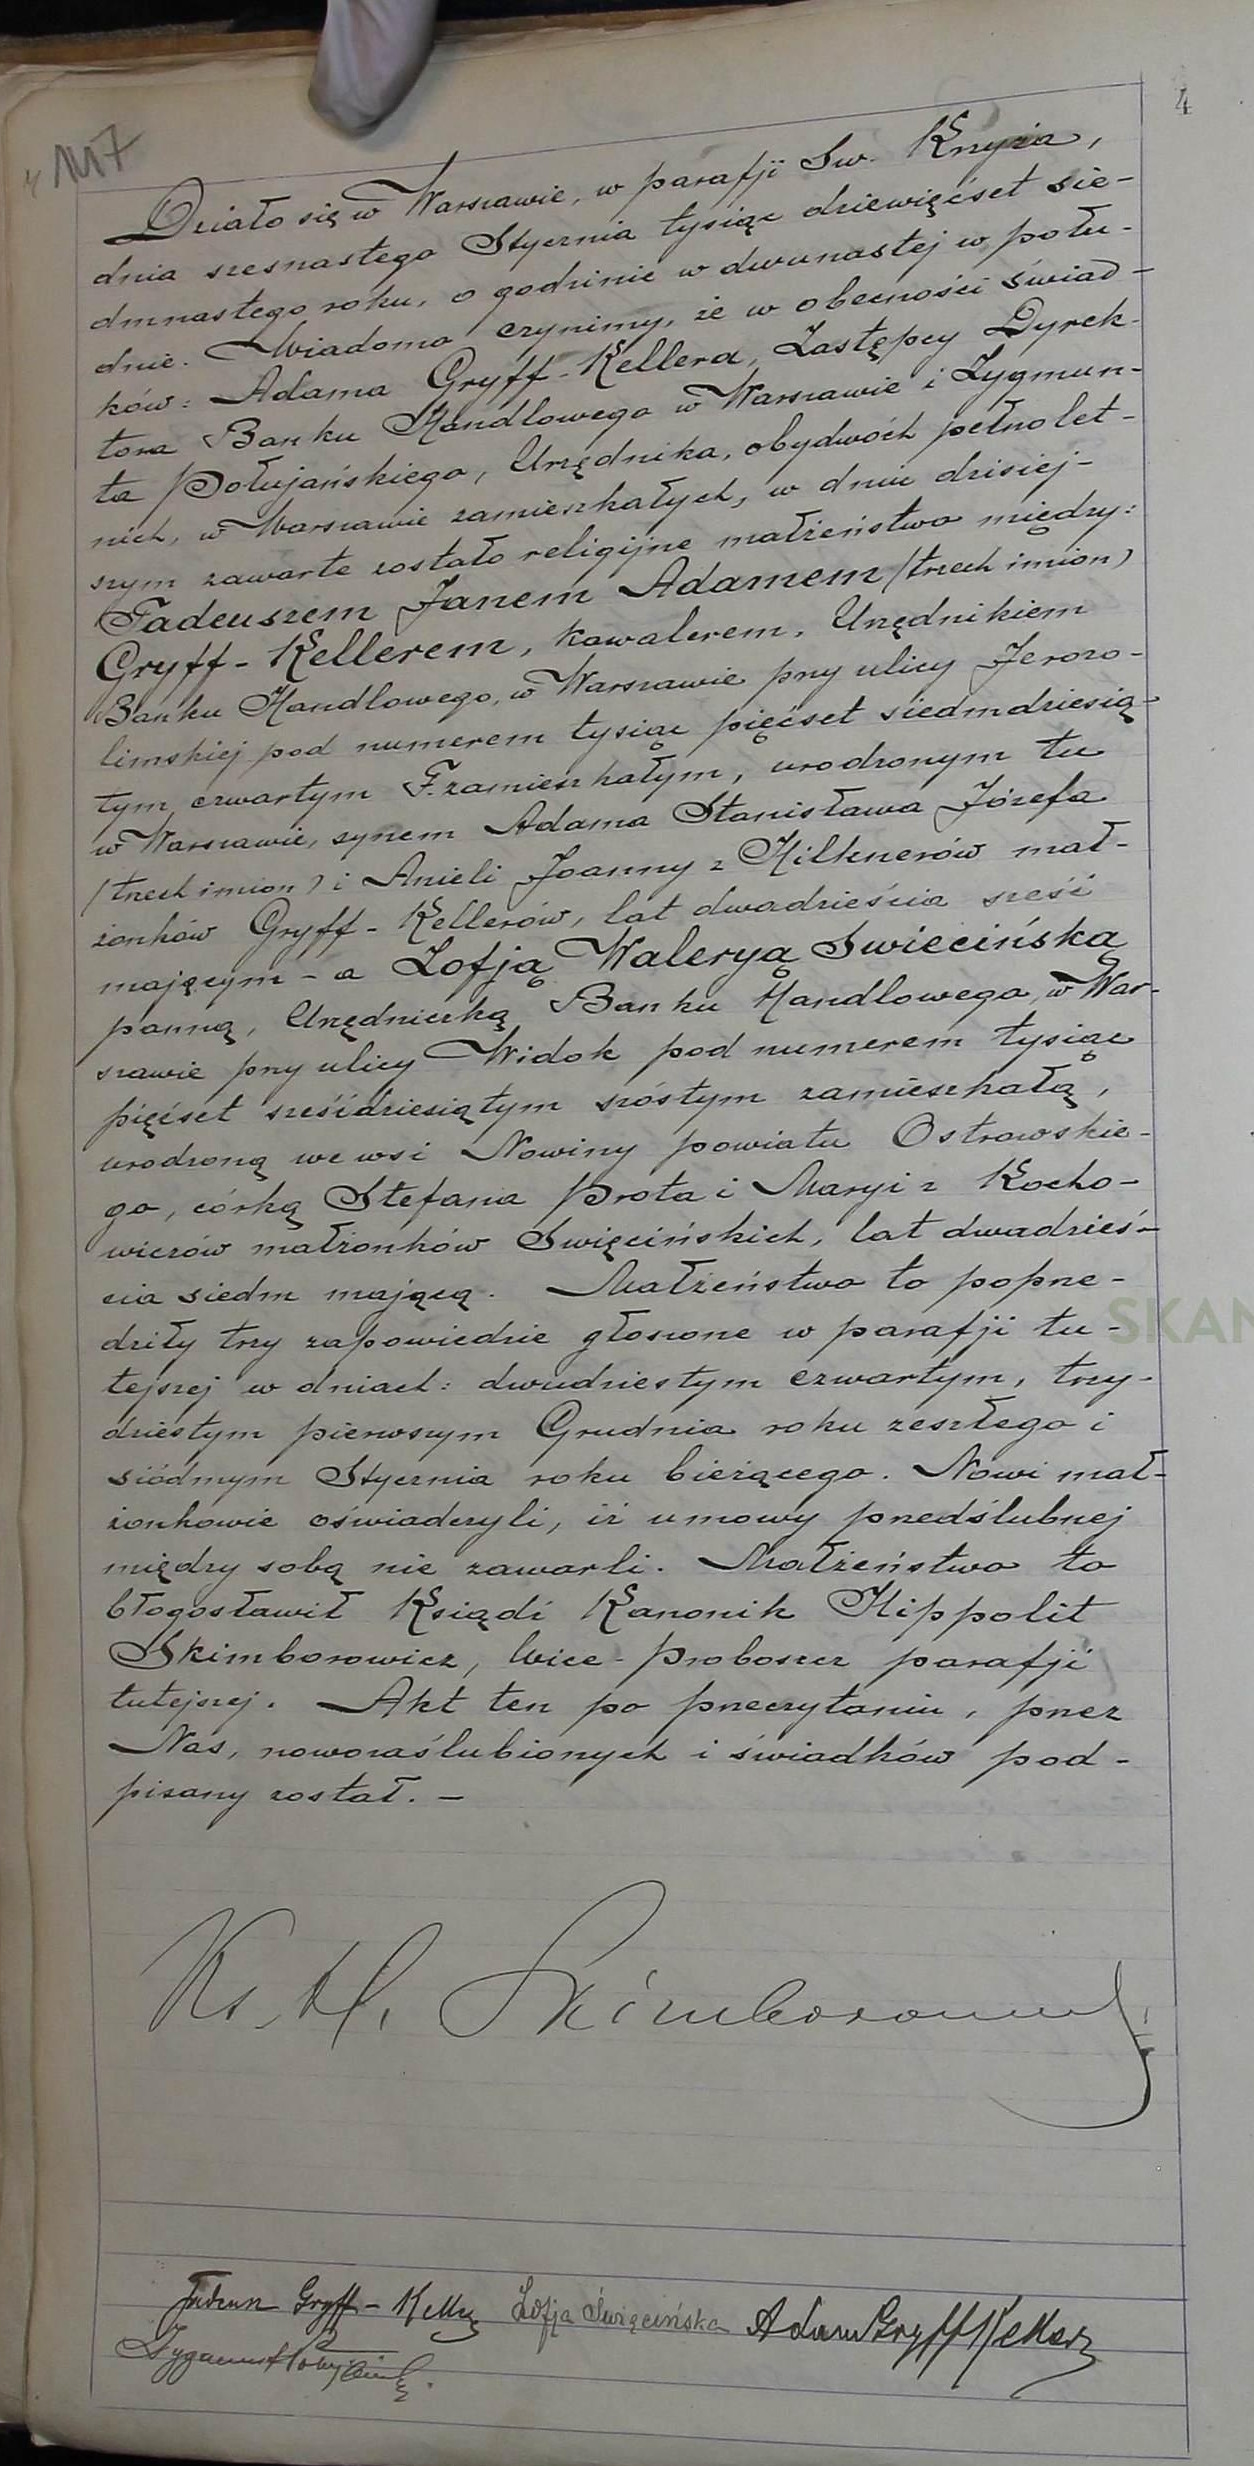 4
Działo się w Warszawie, w parafji Sw. Krzyża,
dnia szesnastego Stycznia tysiąc dziewięćset sie-
dmnastego roku, o godzinie w dwunastej w połu-
dnie. Wiadomo czynimy, że w obecności świad-
ków: Adama Gryff-Kellera, Zastępcy Dyrek-
tora Banku Handlowego w Warszawie i Zygmun-
ta Połujańskiego, Urzędnika, obydwóch pełnolet-
nich, w Warszawie zamieszkałych, w dniu dzisiej-
szym zawarte zostało religijne małżeństwo między:
Tadeuszem Janem Adamem (trzech imion)
Gryff-Kellerem, kawalerem, Urzędnikiem
Banku Handlowego, w Warszawie przy ulicy Jerozo-
limskiej pod numerem tysiąc pięćset siedmdziesią-
tym czwartym F. zamieszkałym, urodzonym tu
w Warszawie, synem Adama Stanisława Józefa
(trzech imion) i Anieli Joanny z Hilknerów mał-
żonków Gryff-Kellerów, lat dwadzieścia sześć
mającym - a Zofją Waleryą Swiecińską
panną, Urzędniczką Banku Handlowego, w War-
szawie przy ulicy Widok pod numerem tysiąc
pięćset sześćdziesiątym szóstym zamieszkałą,
urodzoną we wsi Nowiny powiatu Ostrowskie-
go, córką Stefana Prota i Maryi z Kocho-
wiczów małżonków Swięcińskich, lat dwadzieś-
cia siedm mającą. Małżeństwo to poprze-
dziły trzy zapowiedzie głoszone w parafji tu-
tejszej w dniach: dwudziestym czwartym, trzy-
dziestym pierwszym Grudnia roku zeszłego i
siódmym Stycznia roku bieżącego. Nowi mał-
żonkowie oświadczyli, iż umowy przedślubnej
między sobą nie zawarli. Małżeństwo to
błogosławił Ksiądź Kanonik Hippolit
Skimborowicz, Wice-Proboszcz parafji
tutejszej. Akt ten po przeczytaniu, przez
Nas, nowozaślubionych i świadków pod-
pisany został. —
Ks. H. Skimborowicz
Tadeusz Gryff-Keller Zofja Święcińska Adam Gryff Keller
Zygmunt Połujański
SKAN